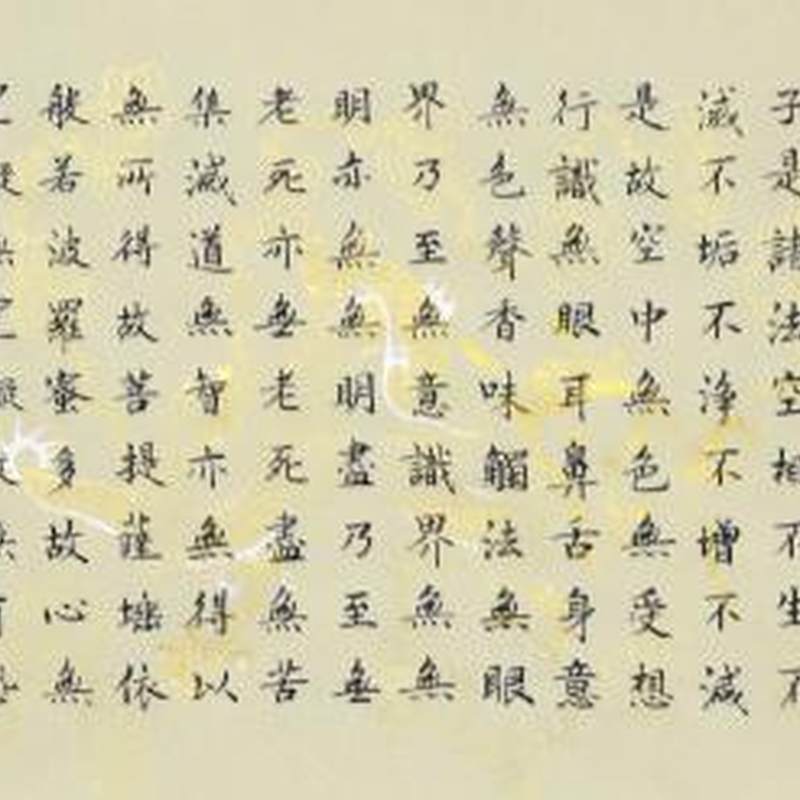 子是諸法空相不生不
滅不垢不淨不增不減
是故空中無色無受想
行識無眼耳鼻舌身意
無色聲香味觸法無眼
界乃至無意識界無無
明亦無無明盡乃至無
老死亦無老死盡無苦
集滅道無智亦無得以
無所得故菩提薩埵依
般若波羅蜜多故心無